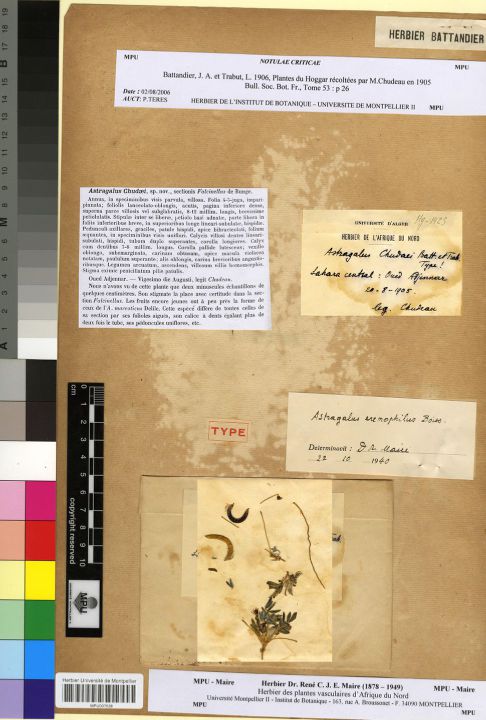 HERBIER BATTANDIER
MPU NOTULAE CRITICAE MPU
Battandier, J. A. et Trabut, L. 1906, Plantes du Hoggar récoltées par M.Chudeau en 1905
Bull. Soc. Bot. Fr., Tome 53 : p 26
Date : 02/08/2006
AUCT: P.TERES
HERBIER DE L'INSTITUT DE BOTANIQUE – UNIVERSITE DE MONTPELLIER II MPU
Astragalus Chudæi, sp. nov., sectionis Falcinellus de Bunge.
Annua, in speciminibus visis parvula, villosa. Folia 4-5-juga, impari-
pinnata; foliolis lanceolato-oblongis, acutis, pagina inferiore dense,
superna parce villosis vel subglabratis, 8-12 millim. longis, brevissime
petiolulatis. Stipulæ inter se liberæ, petiolo basi adnatæ, parte libera in
foliis inferioribus brevi, in superioribus longe lineari-subulatæ, hispidæ.
Pedunculi axillares, graciles, patule hispidi, apice bibracteolati, folium
æquantes, in speciminibus visis uniflori. Calycis villosi dentes lineari-
subulati, hispidi, tubum duplo superantes, corolla longiores. Calyx
cum dentibus 7-8 millim. longus. Corolla pallide lutescens; vexillo
oblongo, subemarginato, carinam obtusam, apice macula violacea
notatam, paululum superante; alis oblongis, carina brevioribus angustis,
obtusis. Legumen arcuatum, acutatum, villosum villis homomorphis.
Stigma eximie penicillatum pilis patulis.
Oued Adjennar. — Vigesimo die Augusti, legit Chudeau.
Nous n'avons vu de cette plante que deux minuscules échantillons de
quelques centimètres. Son stigmate la place avec certitude dans la sec-
tion Falcinellus. Les fruits encore jeunes ont à peu près la forme de
ceux de l'A. mareoticus Delile. Cette espèce diffère de toutes celles de
sa section par ses folioles aiguës, son calice à dents égalant plus de
deux fois le tube, ses pédoncules uniflores, etc.
UNIVERSITÉ D'ALGER
HERBIER DE L'AFRIQUE DU NORD
Astragalus Chudaei Batt. et Trab.
Type!
Sahara central : Oued Adjennar
20-8-1905.
leg. Chudeau
TYPE
Astragalus eremophilus Boiss.
Determinavit : Dr R. Maire
22 10 1940
cm 0 1 2 3 4 5 6 7 8 9 10
copyright reserved
MPU
Herbier Université de Montpellier
MPU - Maire Herbier Dr. René C. J. E. Maire (1878 – 1949) MPU - Maire
Herbier des plantes vasculaires d'Afrique du Nord
Université Montpellier II - Institut de Botanique - 163, rue A. Broussonet - F. 34090 MONTPELLIER
MPU MPU